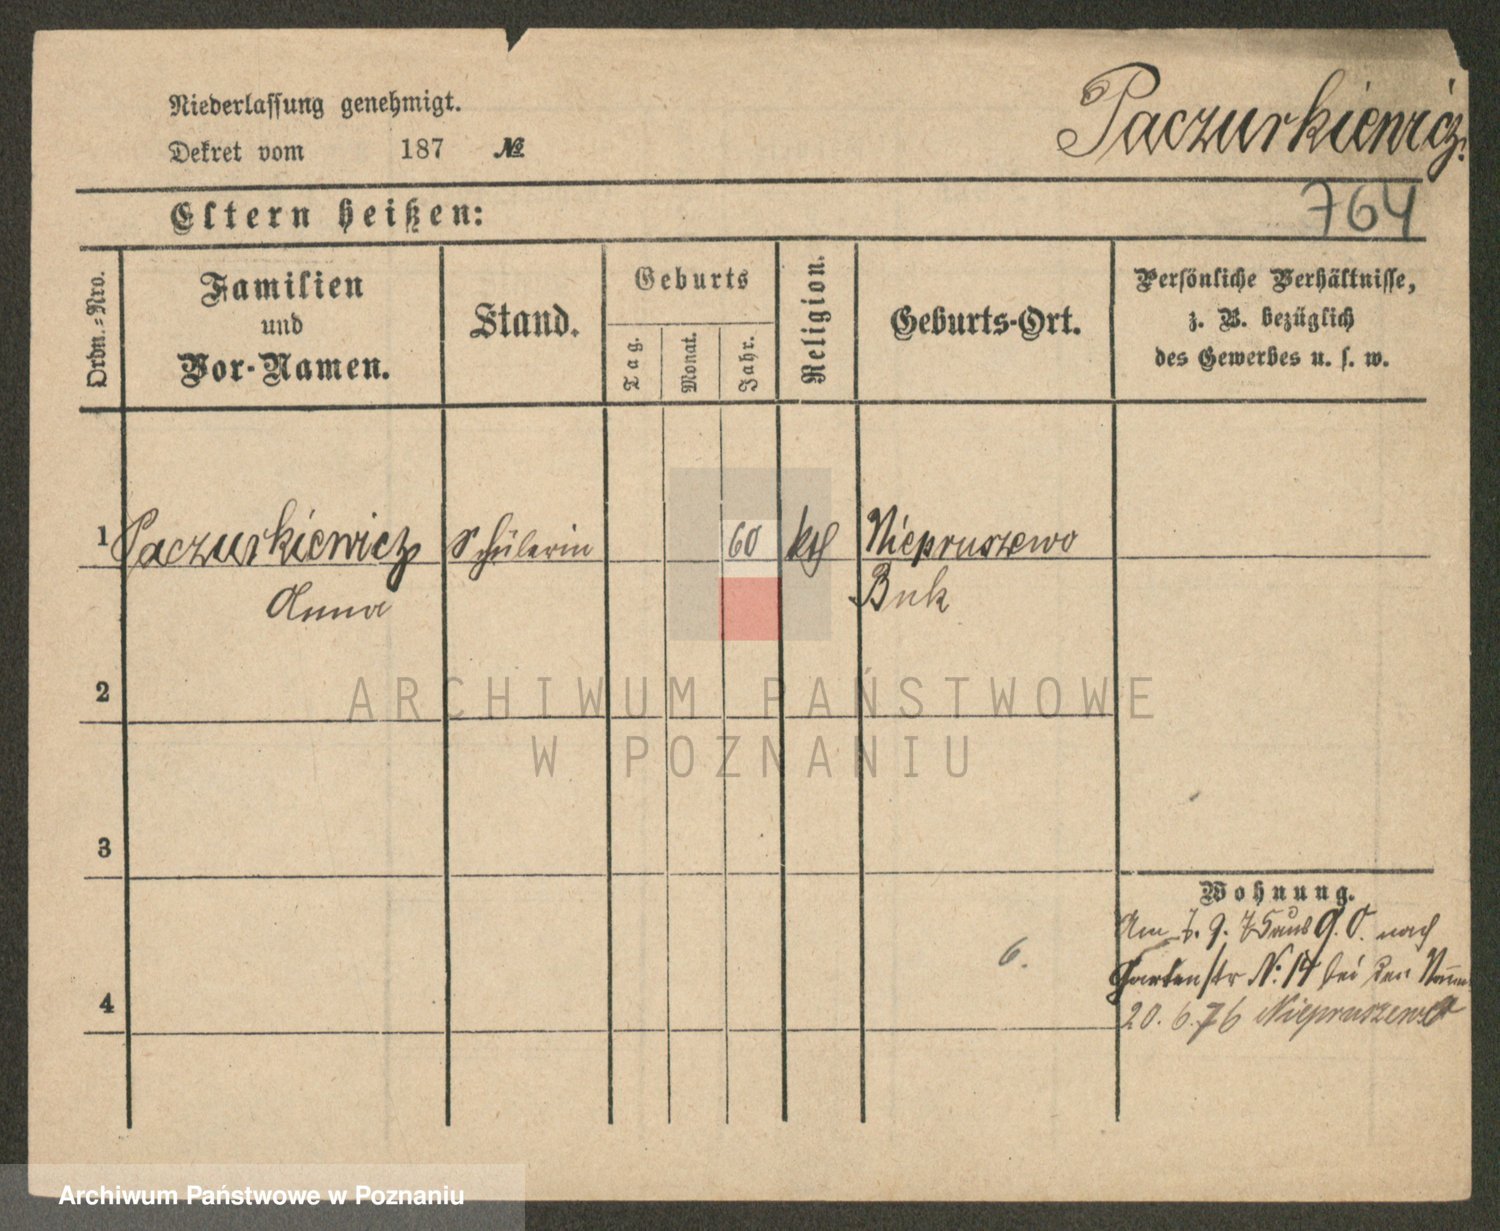 Niederlassung genehmigt.
Dekret vom 187 №
Paczurkiewicz.
764
Eltern heißen:
Ordn.=Nro.
Familien
und
Vor-Namen.
Stand.
Geburts
Tag.
Monat.
Jahr.
Religion.
Geburts-Ort.
Persönliche Verhältnisse,
z. B. bezüglich
des Gewerbes u. s. w.
1 Paczurkiewicz Schülerin 60 kth Niepruszewo
Anna Buk
2
ARCHIWUM PAŃSTWOWE
W POZNANIU
3
Wohnung.
Am 7. 9. 75 aus G. O. nach
6.
Gartenstr № 14 bei den
4
20. 6. 76 Niepruszewo
Archiwum Państwowe w Poznaniu